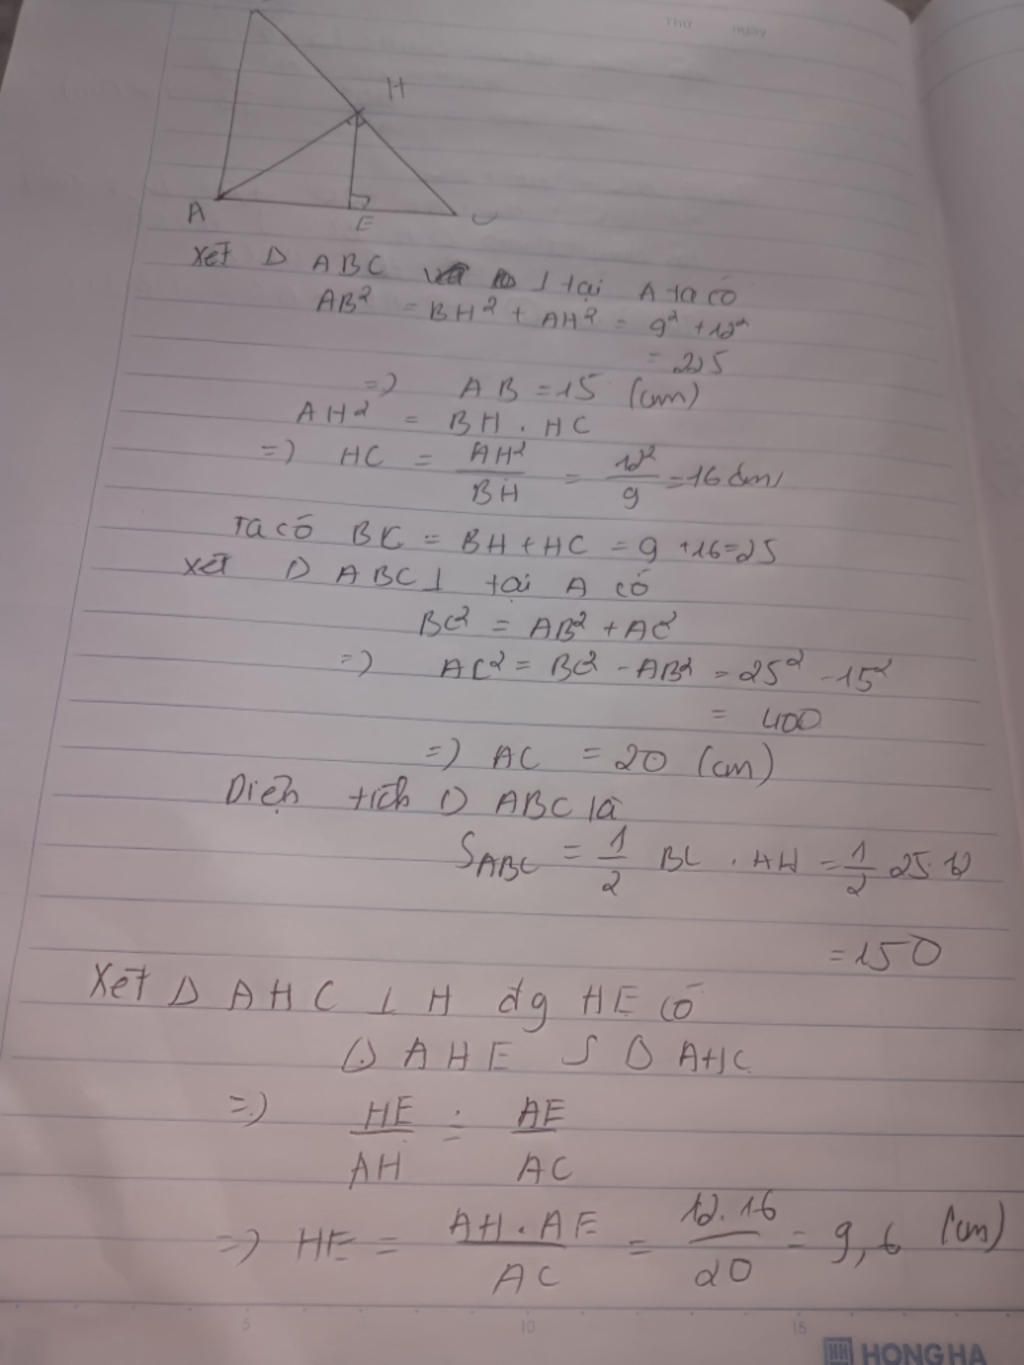 Thứ ngày
H
A
E
C
Xét Δ ABC ⊥ tại A ta có
AB² = BH² + AH² = 9² + 12²
= 225
=> AB = 15 (cm)
AH² = BH . HC
=> HC = AH²/BH = 12²/9 = 16 cm
Ta có BC = BH + HC = 9 + 16 = 25
xét Δ ABC ⊥ tại A có
BC² = AB² + AC²
=> AC² = BC² - AB² = 25² - 15²
= 400
=> AC = 20 (cm)
Diện tích Δ ABC là
S_ABC = 1/2 BC . AH = 1/2 25.12
= 150
Xét Δ AHC ⊥ H đg HE có
Δ AHE ∽ Δ AHC
=> HE/AH = AE/AC
=> HE = AH . AE/AC = 12.16/20 = 9,6 (cm)
5 10 15
HH HONG HA